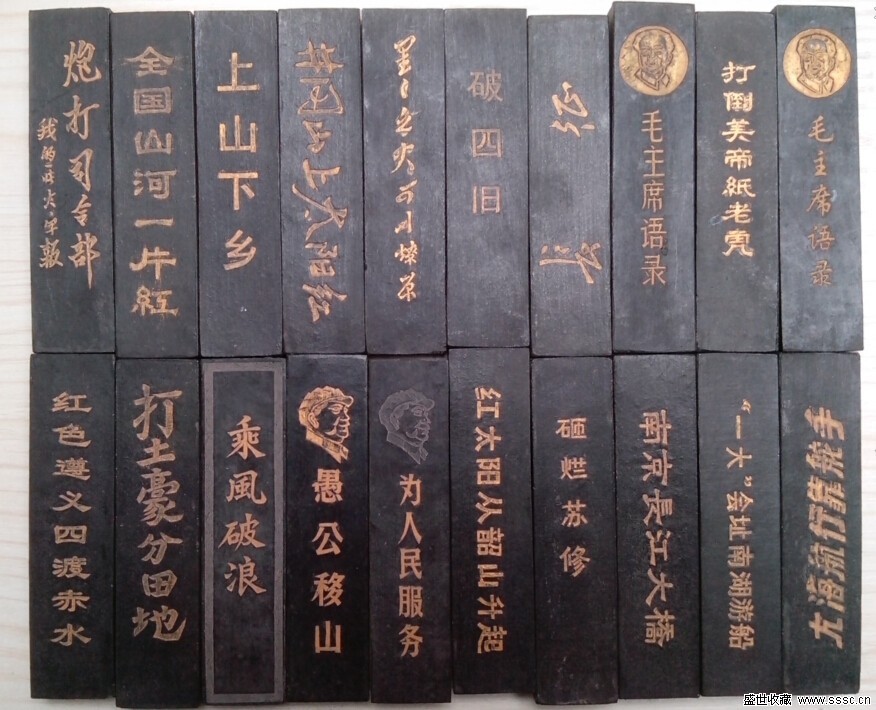 炮打司令部
我的一张大字报
全国山河一片紅
上山下乡
井冈山上太阳红
星星之火可以燎原
破四旧
毛主席语录
打倒美帝紙老虎
毛主席语录
红色遵义四渡赤水
打土豪分田地
乘風破浪
愚公移山
为人民服务
红太阳从韶山升起
砸烂苏修
南京長江大橋
“一大”会址南湖游船
大海航行靠舵手
盛世收藏 www.sssc.cn